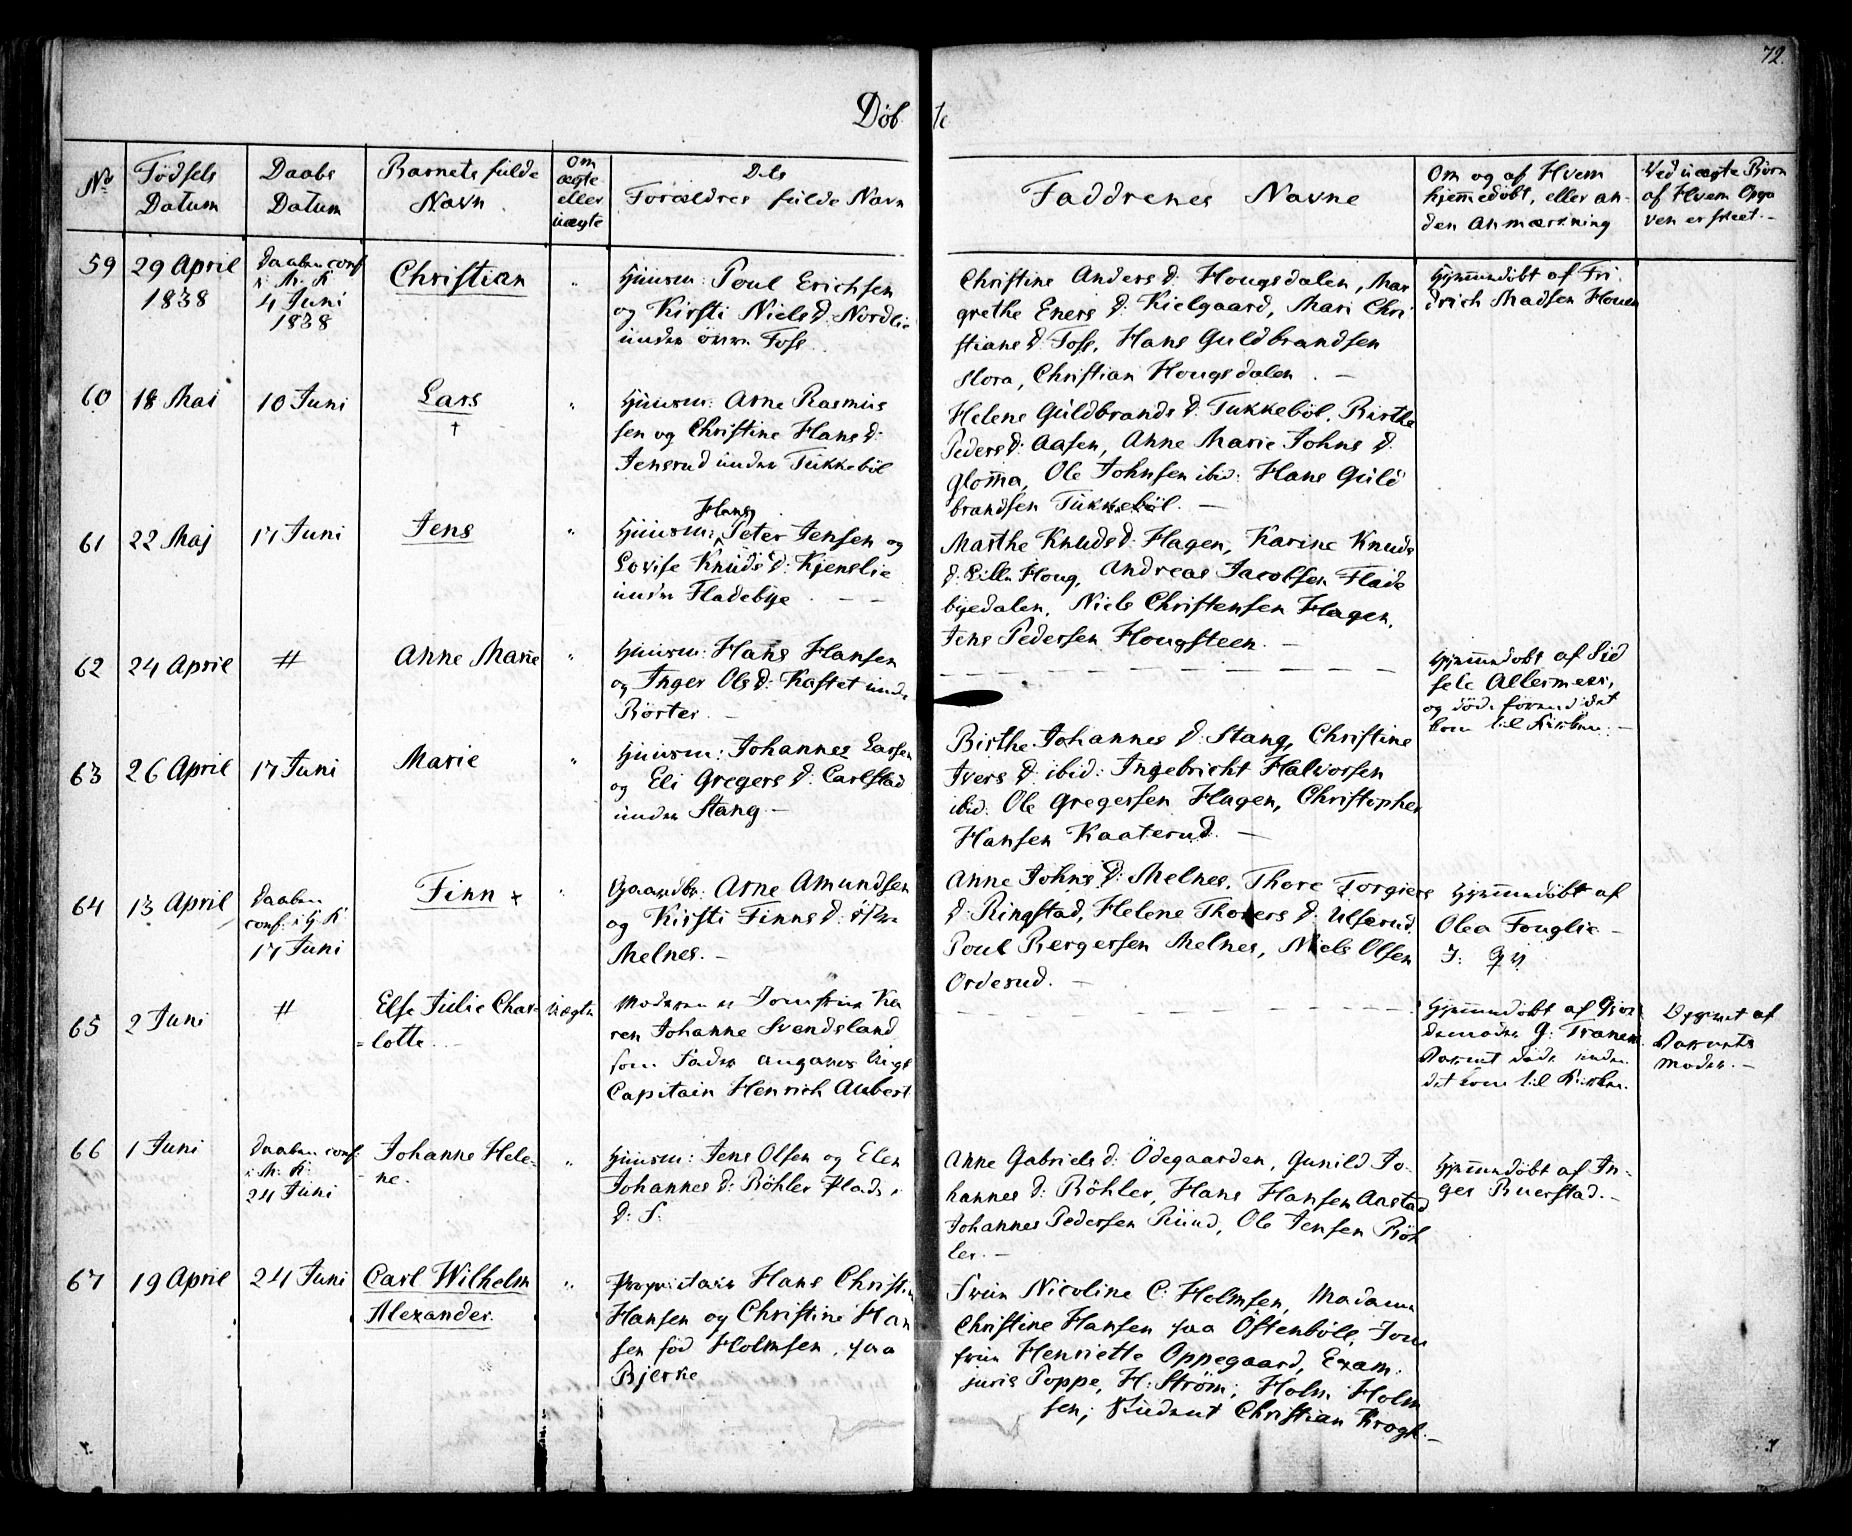 72.
Döbte
No
Födsels
Datum
Daabs
Datum
Barnets fulde
Navn
Om
ægte
eller
uægte
Dets
Forældres fulde Navn
Faddrenes Navne
Om og af Hvem
hjemmedöbt, eller an-
den Anmærkning
Ved uægte Börn
af Hvem Opga
ven er skeet.-
59 29 April
1838
Daaben conf
i M. K
4 Juni
1838
Christian
"
Huusm: Poul Erichsen
og Kirsti Niels d. Nordlie
under övre Foss.
Christine Anders d. Hougsdalen, Mar
grethe Eners d. Kielgaard, Mari Chri
stians d. Foss, Hans Guldbrandsen
Mora, Christian Hougsdalen. -
Hjemmedöbt af Fri
drich Madsen Houen
60 18 Mai
10 Juni
Lars
†
"
Huusm: Arne Rasmus
sen og Christine Hans d:
Jensrud under Tukkeböl
Helene Guldbrands d. Tukkeböl, Birthe
Peders d: Aasen, Anne Marie Johns d.
Glomma, Ole Johnsen ibid: Hans Guld
brandsen Tukkeböl. -
61 22 Maj
17 Juni
Jens
"
Hans
Huusm: Peter Jensen og
Lovise Knuds d: Kjenslie
under Fladebye . - -
Marthe Knuds d. Hagen, Karine Knuds
d. Lille Houg, Andreas Jacobsen Flade
byedalen, Niels Christensen Hagen,
Jens Pedersen Hougsteen. -
62 24 April
#
Anne Marie
"
Huusm: Hans Hansen
og Inger Ols d: Kastet unde
Börter. -
Hjemmedöbt af Sid
sele
og döde forend det
kom til Kirken. -
63 26 April
17 Juni
Marie
"
Huusm: Johannes Larsen
og Eli Gregers d: Carlstad
under Stang -
Birthe Johannes d. Stang, Christine
Ivers d. ibid: Ingebricht Halvorsen
ibid. Ole Gregersen Hagen, Christopher
Hansen Kaaterud. -
64 13 April
Daaben
conf. i K
17 Juni
Finn +
"
Gaardbr: Arne Amundsen
og Kirsti Finns d:
Melnes. -
Anne Johns d: Melnes, Thore Torgiers
d. Ringstad, Helene Thorers d. Ulserud,
Poul Bergersen Melnes, Niels Olsen
Orderud. -
Hjemmedöbt af
Olea Fouglie -
65 2 Juni
#
Else Julie Char-
- lotte. -
Uægte
Moderen er Jomfrue Ka
ren Johanne Svendsland
som Fader angaves
Capitain Henrich Aubert
Hjemmedöbt af Gior
demoder G: Tranem
Barnet döde inden
det kom til Kirken.
Opgivet af
Barnets
Moder. -
66 1 Juni
Daaben conf.
i M. K.
24 Juni
Johanne Hele-
- ne.
"
Huusm: Jens Olsen og Elen
Johannes d: Böhler Plads
Anne Gabriels d: Ödegaarden, Gunild Jo-
hannes d: Böhler, Hans Hansen Aastad
Johannes Pedersen Ruud, Ole Jensen Böh
ler. -
Hjemmedöbt af In-
ger Buerstad. -
67 19 April
24 Juni
Carl Wilhelm
Alexander.
"
Proprietair Hans Christian
Hansen og Christine Han
sen föd Holmsen, paa
Bjerke
Fruu Nicoline C: Holmsen, Madame
Christine Hansen paa Östenböll, Jom
fruu Henriette Oppegaard, Exam:
juris Poppe, H: Ström, Holm Holm
sen, Student Christian Krogh. -